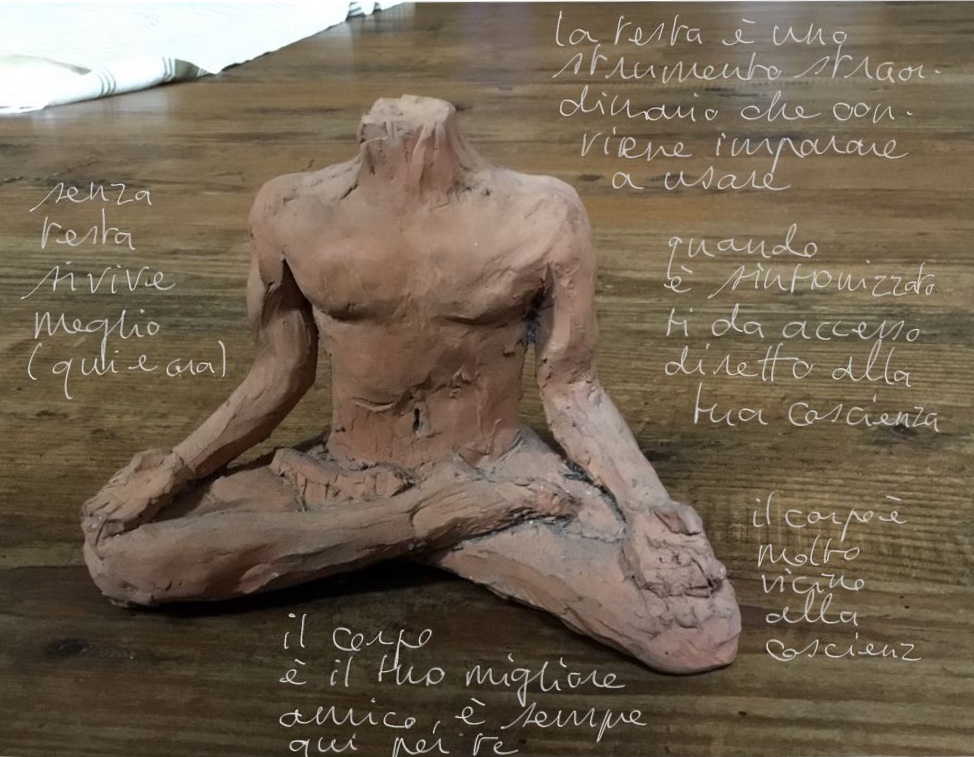 la testa è uno
strumento straor-
dinario che con-
viene imparare
a usare
senza
testa
si vive
meglio
(qui e ora)
quando
è sintonizzato
ti da accesso
diretto alla
tua coscienza
il corpo è
molto
vicino
alla
coscienz
il corpo
è il tuo migliore
amico, è sempre
qui per te